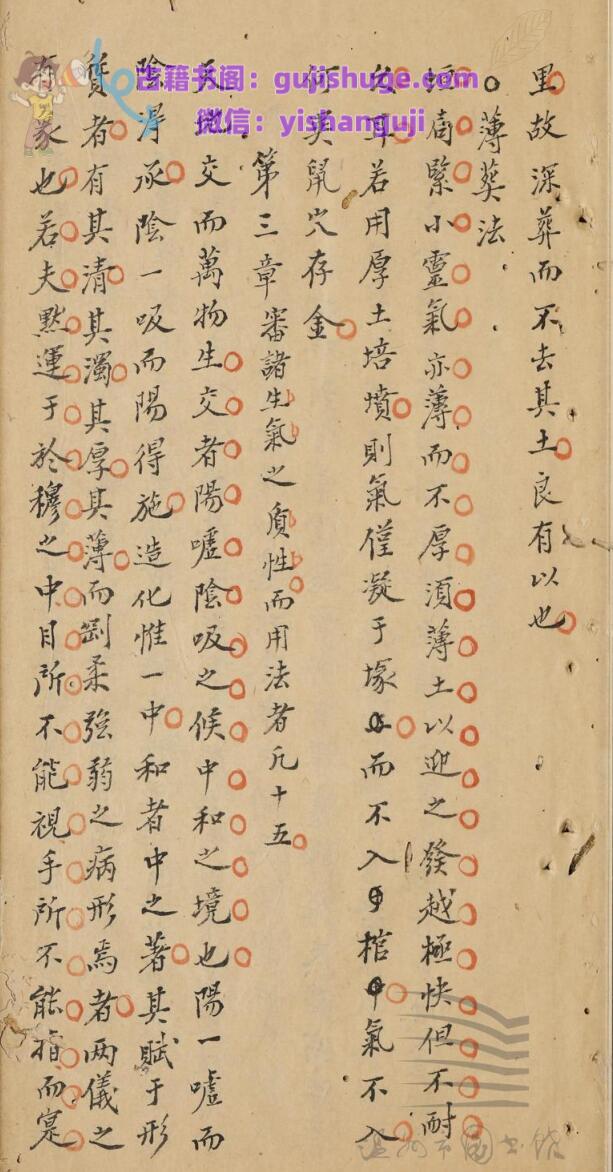 里故深葬而不去其土良有以也
薄葬法
垣局緊小靈氣亦薄而不厚須薄土以迎之發越極快但不耐
久耳若用厚土培墳則氣僅凝于塚 而不入 棺 氣不入
何異鼠穴存金
第三章審諸生氣之質性而用法者凡十五
天地交而萬物生交者陽噓陰吸之候中和之境也陽一噓而
陰得承陰一吸而陽得施造化惟一中和者中之著其賦于形
質者有其清其濁其厚其薄而剛柔強弱之病形焉者兩儀之
有象也若夫默運于於穆之中目所不能視手所不能指而寔
古籍书阁：gujishuge.com
微信：yishanguji
溫州市圖書館